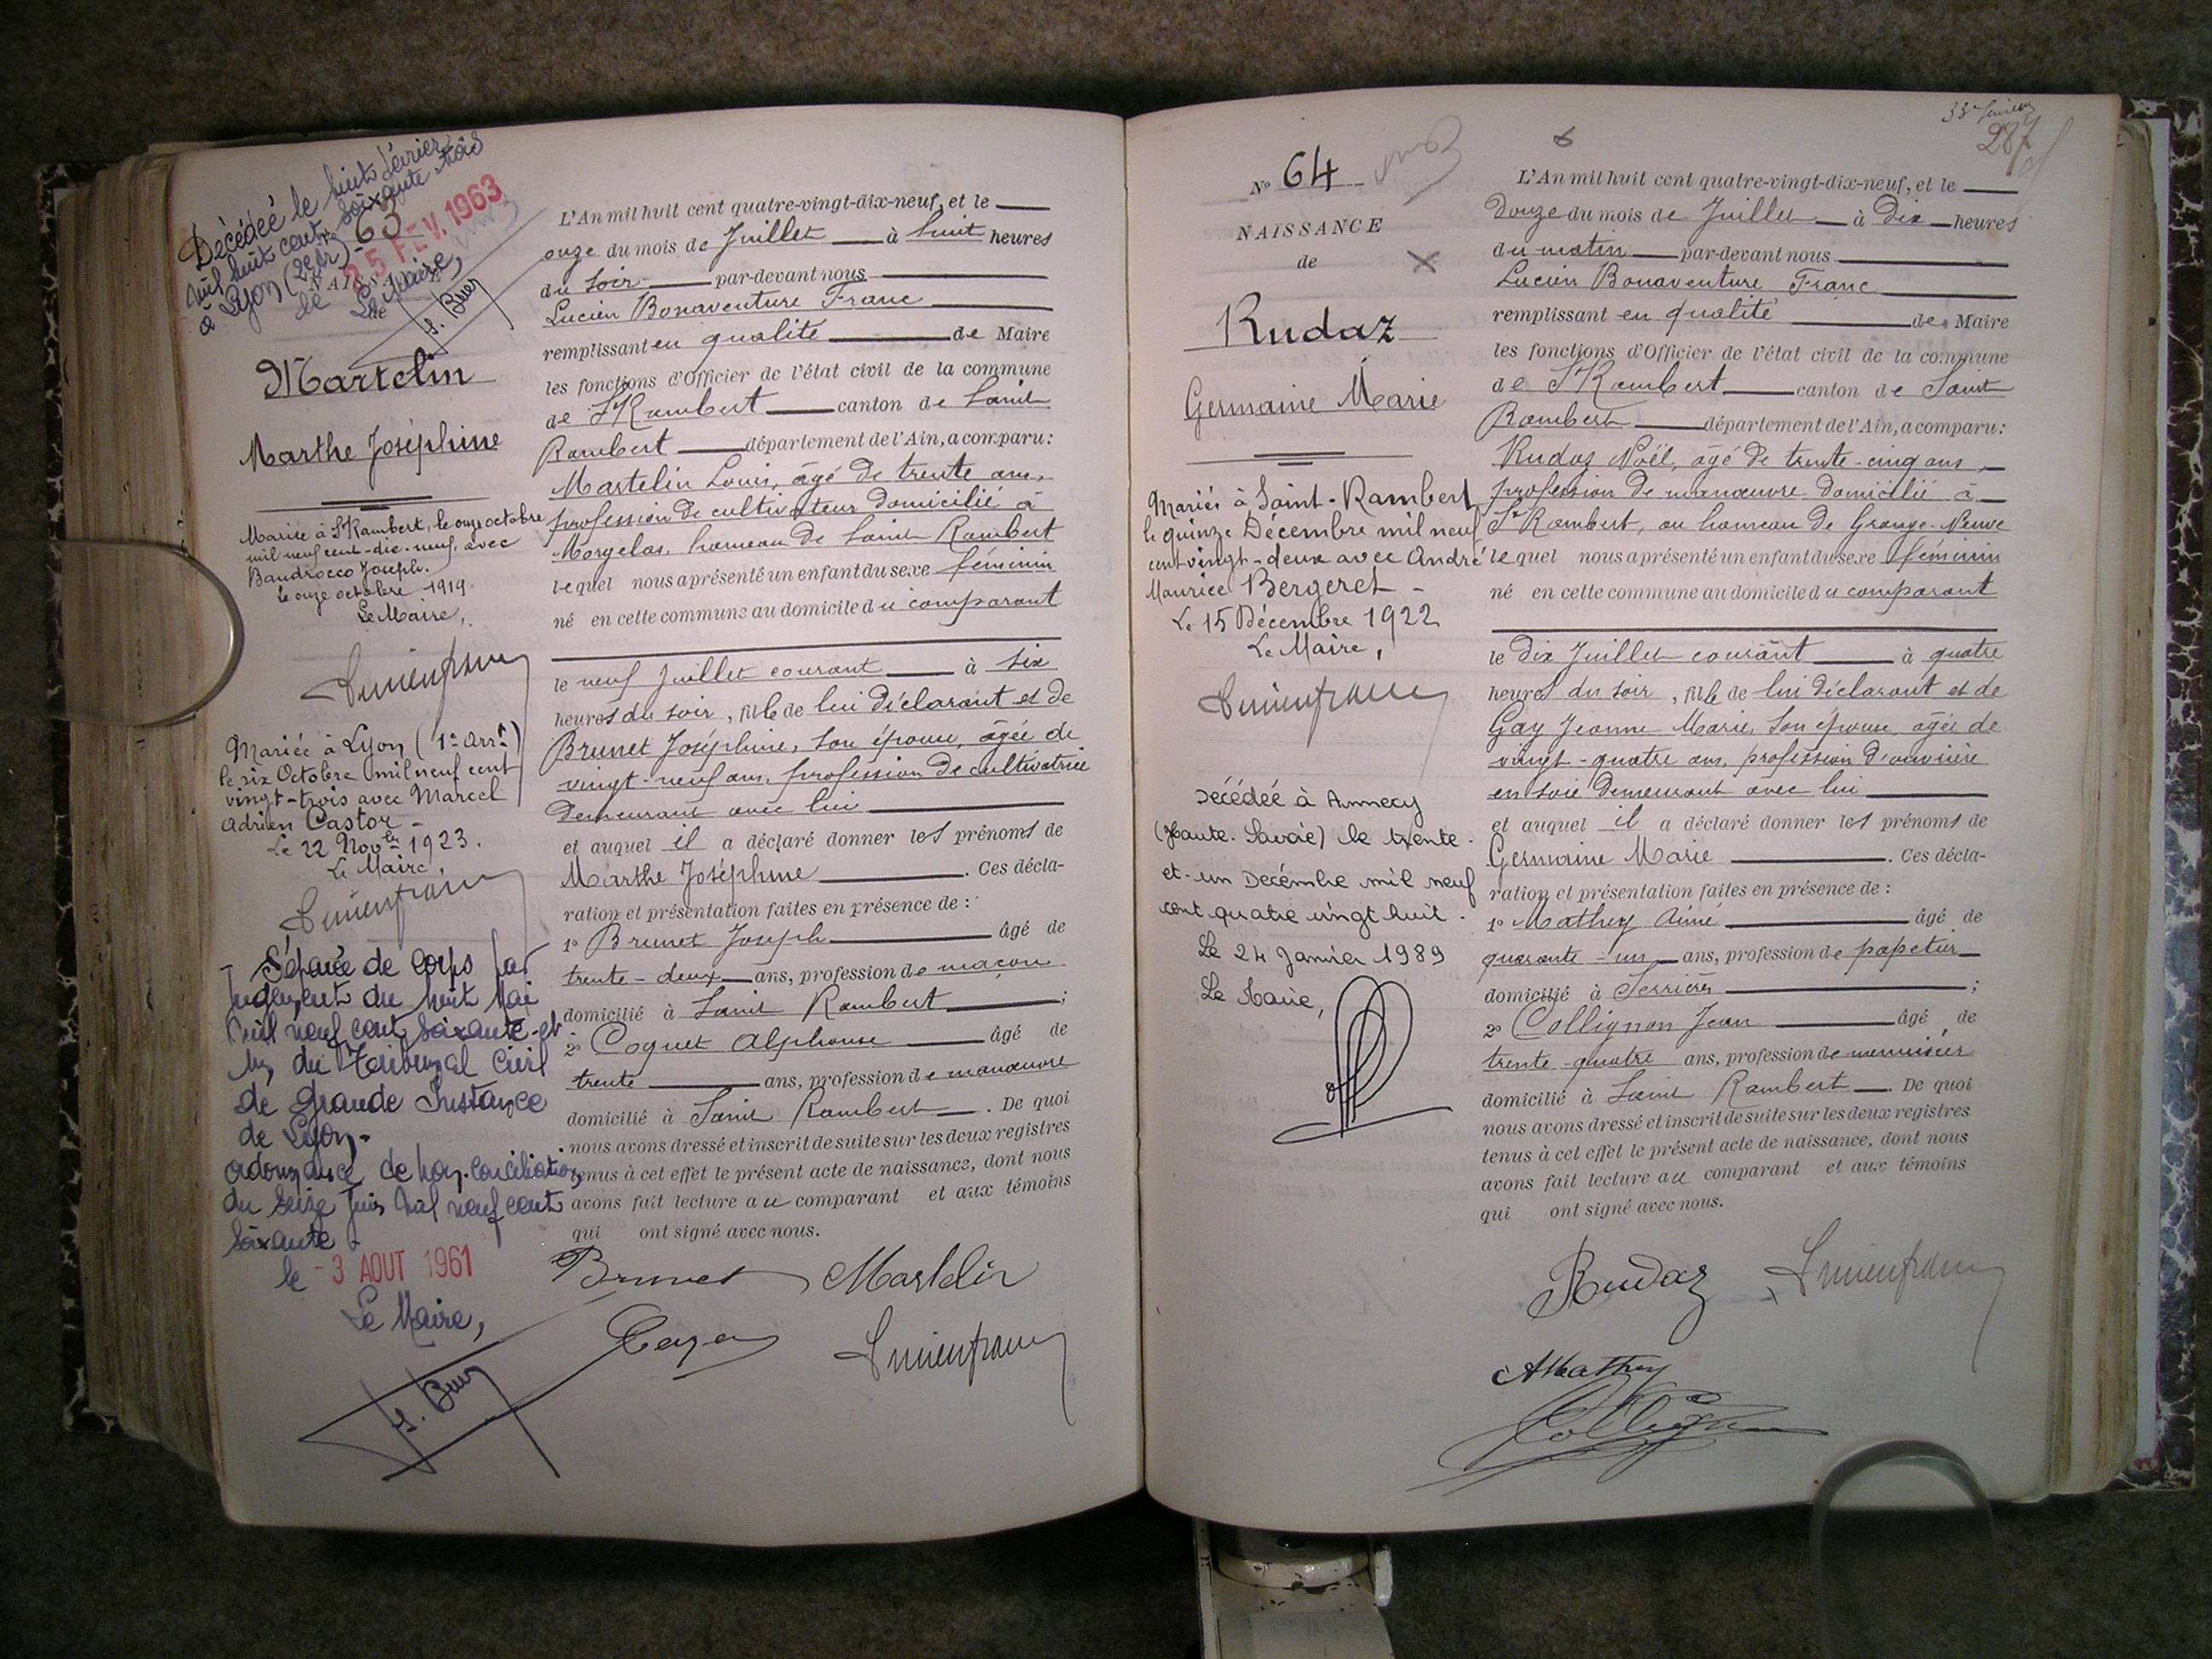 Décédée le huit février
mil huit cent soixante trois
à Lyon (2e Ar)
63
le 25 FEV. 1963
Le Maire,
H. Buer
Martelin
Marthe Joséphine
Mariée à St Rambert, le onze octobre
mil neuf cent-dix-neuf, avec
Baudrocco Joseph.
le onze octobre 1919.
Le Maire,
Lucienfranc
Mariée à Lyon (1er Arrt)
le six Octobre mil neuf cent
vingt-trois avec Marcel
Adrien Castor -
Le 22 Novbre 1923.
Le Maire,
Lucienfranc
Séparée de corps par
jugement du huit Mai
mil neuf cent soixante-et
un du Tribunal Civil
de Grande Instance
de Lyon.-
ordonnance de non-conciliation
du seize Juin mil neuf cent
soixante.
le - 3 AOUT 1961
Le Maire,
H. Buer
L'An mil huit cent quatre-vingt-dix-neuf, et le
onze du mois de Juillet à huit heures
du soir par-devant nous
Lucien Bonaventure Franc
remplissant en qualité de Maire
les fonctions d'Officier de l'état civil de la commune
de St Rambert canton de Saint
Rambert département de l'Ain, a comparu :
Martelin Louis, âgé de trente ans,
profession de cultivateur domicilié à
Morgelas, hameau de Saint Rambert
lequel nous a présenté un enfant du sexe féminin
né en cette commune au domicile du comparant
le neuf Juillet courant à six
heures du soir, fille de lui déclarant et de
Brunet Joséphine, son épouse, âgée de
vingt-neuf ans, profession de cultivatrice
demeurant avec lui
et auquel il a déclaré donner les prénoms de
Marthe Joséphine. Ces décla-
ration et présentation faites en présence de :
1° Brunet Joseph âgé de
trente-deux ans, profession de maçon
domicilié à Saint Rambert ;
2° Coquet Alphonse âgé de
trente ans, profession de manœuvre
domicilié à Saint Rambert. De quoi
nous avons dressé et inscrit de suite sur les deux registres
tenus à cet effet le présent acte de naissance, dont nous
avons fait lecture au comparant et aux témoins
qui ont signé avec nous.
Brunet Martelin
Lucienfranc
287
N° 64
NAISSANCE
de
Rudaz
Germaine Marie
Mariée à Saint-Rambert
le quinze Décembre mil neuf
cent vingt-deux avec André
Maurice Bergeret -
Le 15 Décembre 1922
Le Maire,
Lucienfranc
Décédée à Annecy
(Haute-Savoie) le trente-
et-un Décembre mil neuf
cent quatre vingt huit.
Le 24 Janvier 1989
Le Maire,
L'An mil huit cent quatre-vingt-dix-neuf, et le
Douze du mois de Juillet à Dix heures
du matin par-devant nous
Lucien Bonaventure Franc
remplissant en qualité de Maire
les fonctions d'Officier de l'état civil de la commune
de St Rambert canton de Saint
Rambert département de l'Ain, a comparu :
Rudaz Noël, âgé de trente-cinq ans,
profession de manœuvre domicilié à
St Rambert, au hameau de Grange-Neuve
lequel nous a présenté un enfant du sexe féminin
né en cette commune au domicile du comparant
le dix Juillet courant à quatre
heures du soir, fille de lui déclarant et de
Gay Jeanne Marie, son épouse, âgée de
vingt-quatre ans, profession d'ouvrière
en soie demeurant avec lui
et auquel il a déclaré donner les prénoms de
Germaine Marie. Ces décla-
ration et présentation faites en présence de :
1° Mathey Aimé âgé de
quarante-un ans, profession de papetier
domicilié à Serrières ;
2° Collignon Jean âgé de
trente-quatre ans, profession de menuisier
domicilié à Saint Rambert. De quoi
nous avons dressé et inscrit de suite sur les deux registres
tenus à cet effet le présent acte de naissance, dont nous
avons fait lecture au comparant et aux témoins
qui ont signé avec nous.
Rudaz Lucienfranc
AMathey
Collignon